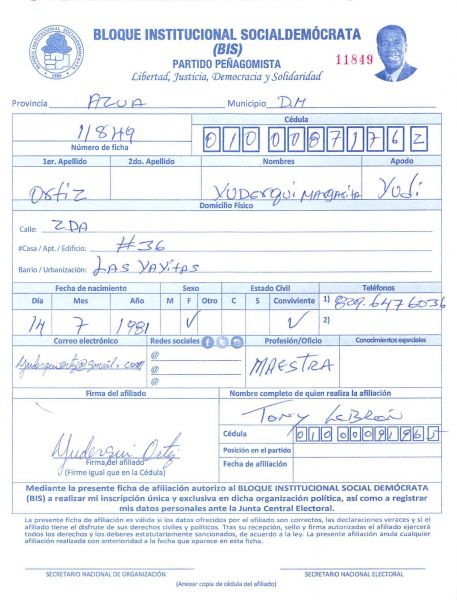 BLOQUE INSTITUCIONAL SOCIALDEMÓCRATA
(BIS)
PARTIDO PEÑAGOMISTA
Libertad, Justicia, Democracia y Solidaridad
11849
Provincia AZUA Municipio D.M
11849
Número de ficha
Cédula
01000871762
1er. Apellido 2do. Apellido Nombres Apodo
Ortiz YUDERQUI MARGARITA Yudi
Domicilio Físico
Calle: 2.DA
#Casa / Apt. / Edificio: #36
Barrio / Urbanización: LAS YAYITAS
Fecha de nacimiento Sexo Estado Civil Teléfonos
Día Mes Año M F Otro C S Conviviente 1) 829.647 6036
14 7 1981 ✓ ✓ 2)
Correo electrónico Redes sociales Profesión/Oficio Conocimientos especiales
@
@
@
MAESTRA
Firma del afiliado Nombre completo de quien realiza la afiliación
Tony LeBrón
Yuderqui Ortiz
Firma del afiliado
(Firme igual que en la Cédula)
Cédula 01000091965
Posición en el partido
Fecha de afiliación
Mediante la presente ficha de afiliación autorizo al BLOQUE INSTITUCIONAL SOCIAL DEMÓCRATA
(BIS) a realizar mi inscripción única y exclusiva en dicha organización política, así como a registrar
mis datos personales ante la Junta Central Electoral.
La presente ficha de afiliación es válida si los datos ofrecidos por el afiliado son correctos, las declaraciones veraces y si el
afiliado tiene el disfrute de sus derechos civiles y políticos. Tras su recepción, sello y firma autorizados el afiliado ejercerá
todos los derechos y los deberes estatutariamente sancionados, de acuerdo a la ley. La presente afiliación anula cualquier
afiliación realizada con anterioridad a la fecha que aparece en esta ficha.
SECRETARIO NACIONAL DE ORGANIZACIÓN SECRETARIO NACIONAL ELECTORAL
(Anexar copia de cédula del afiliado)